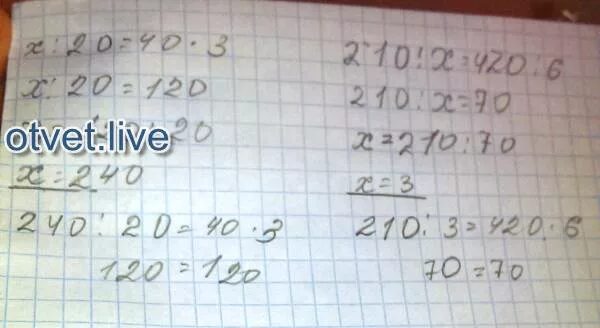 x : 20 = 40 · 3
x : 20 = 120
otvet.live 20
x = 240
240 : 20 = 40 · 3
120 = 120
210 : x = 420 : 6
210 : x = 70
x = 210 : 70
x = 3
210 : 3 = 420 : 6
70 = 70